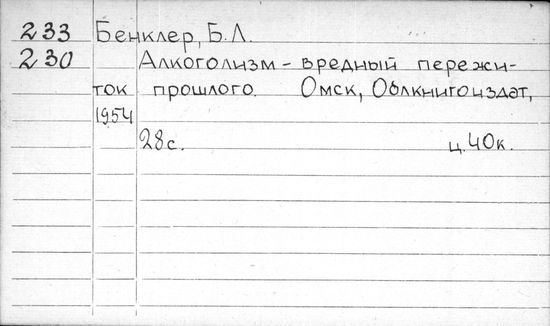 233 Бенклер, Б.Л.
230 Алкоголизм - вредный пережи-
ток прошлого. Омск, Облкнигоиздат,
1954
28с. ц. 40к.